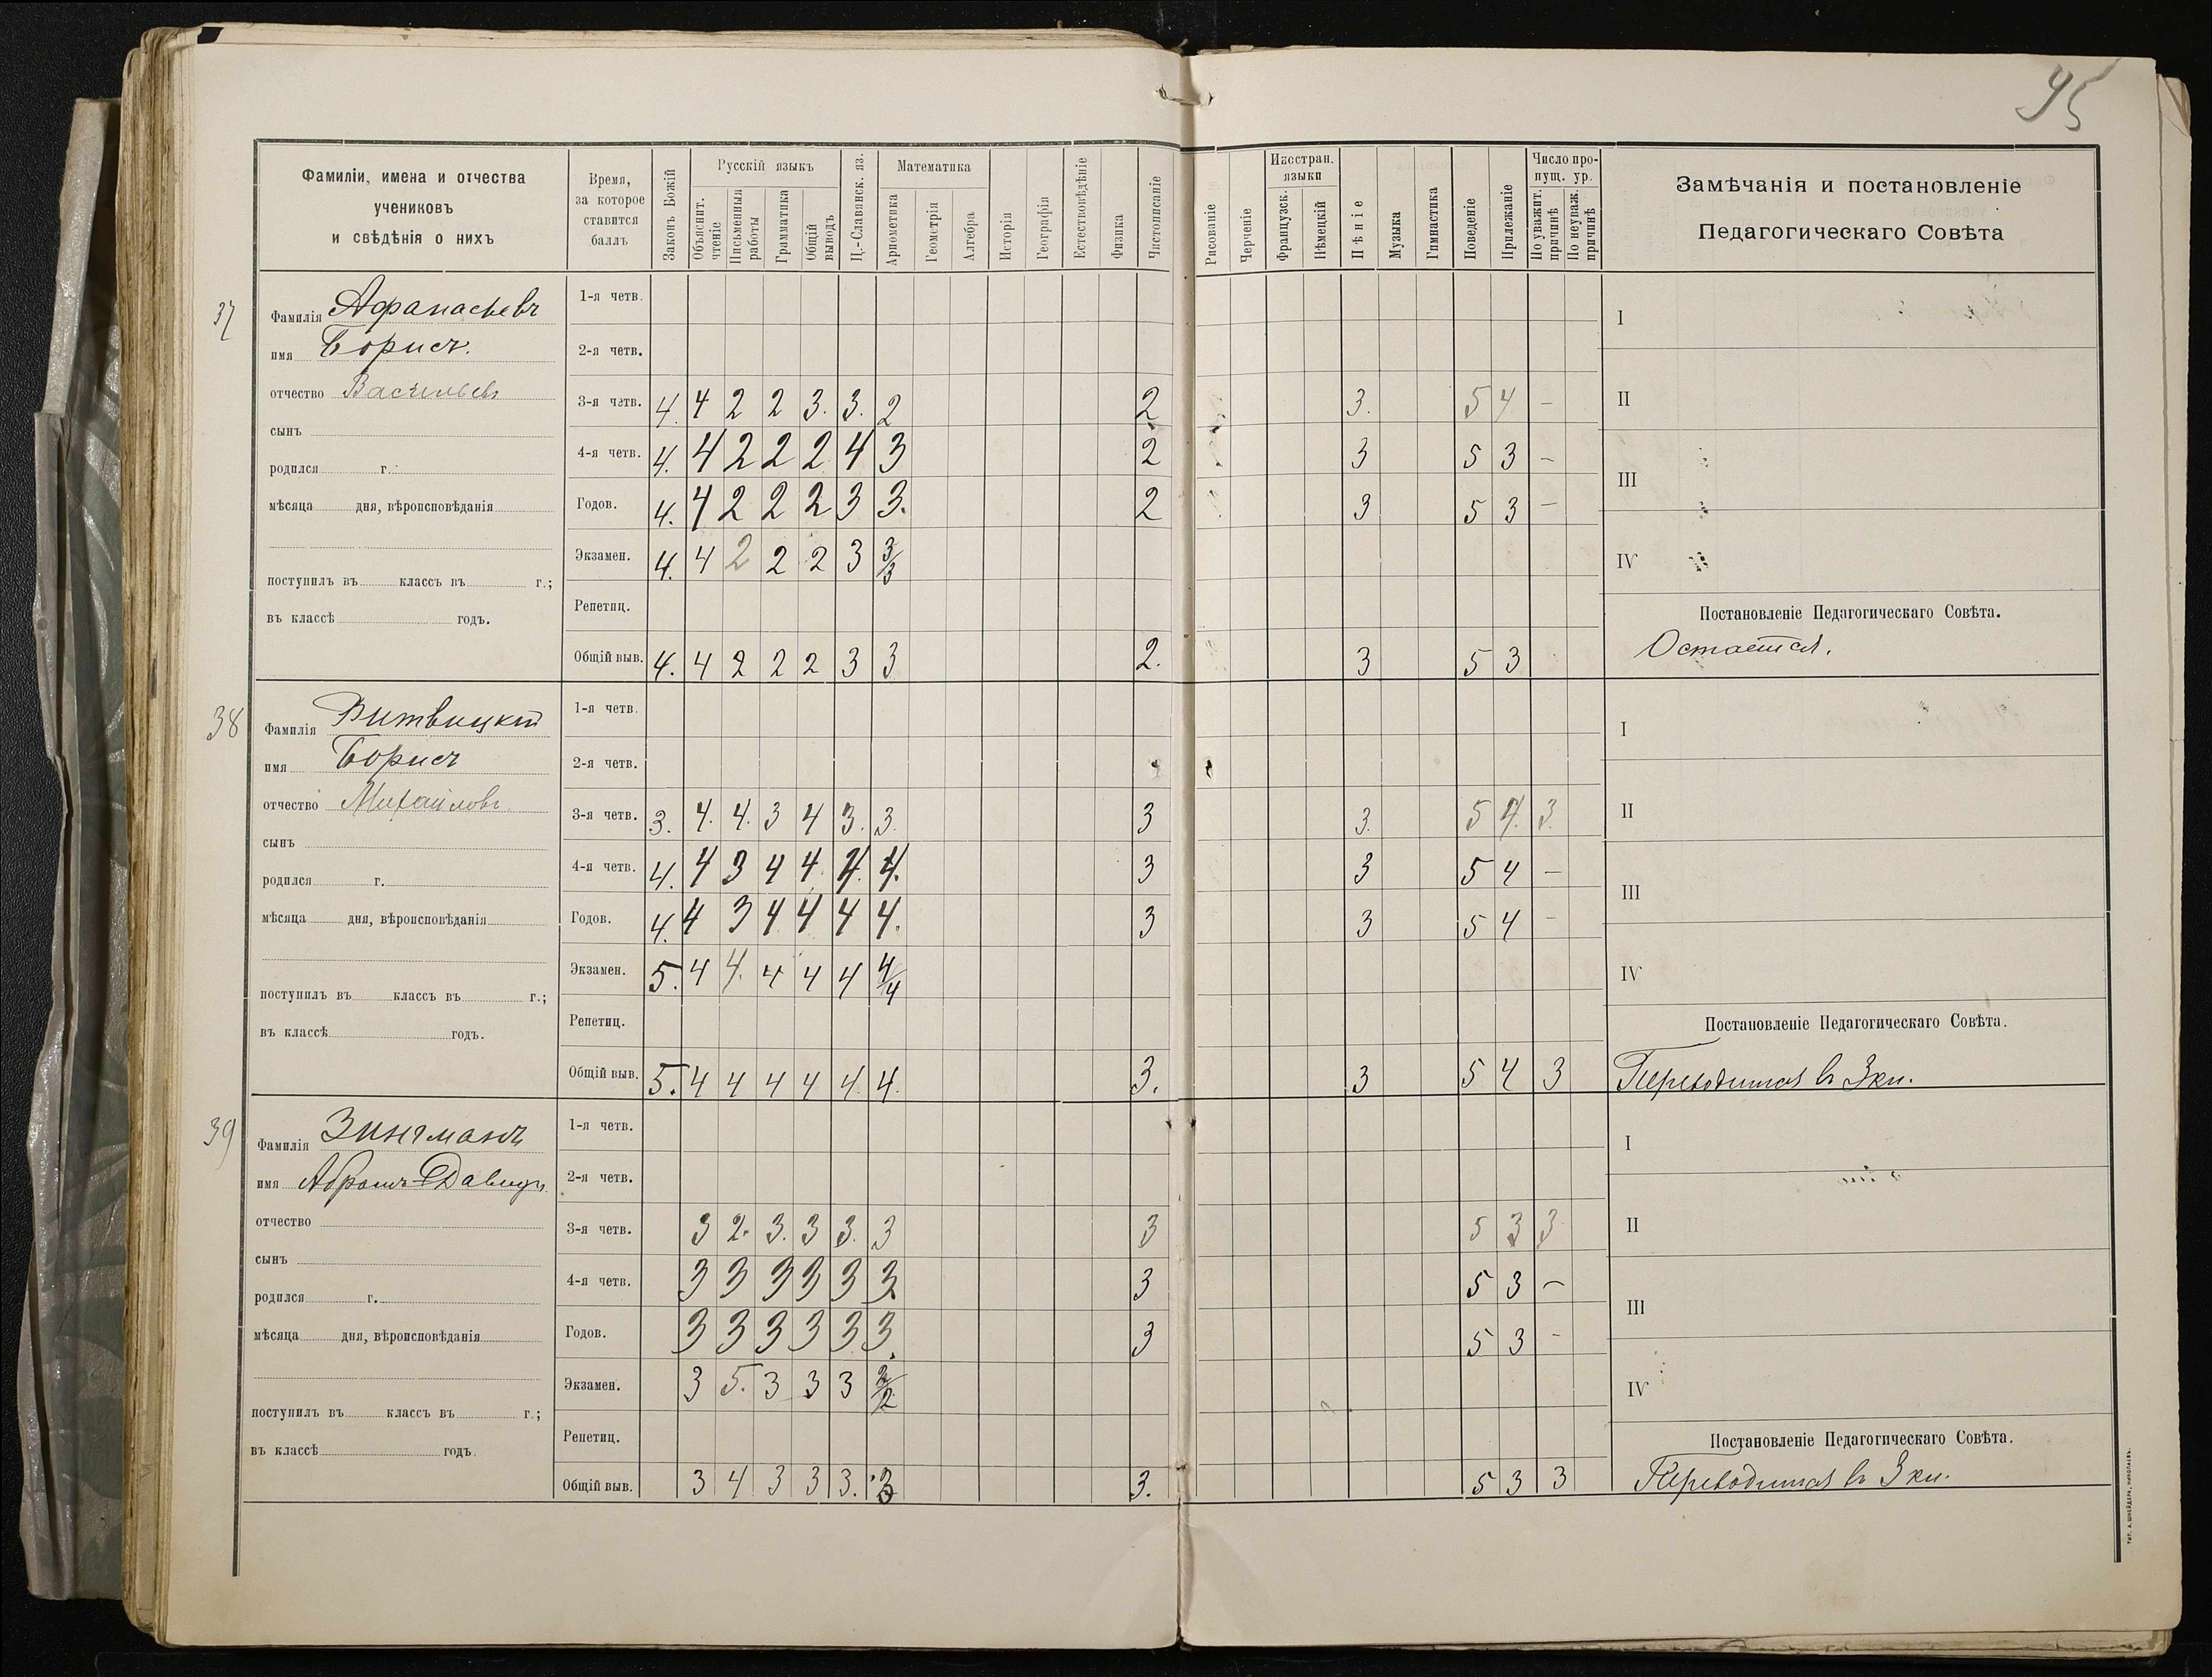 95
Фамиліи, имена и отчества
учениковъ
и свѣдѣнія о нихъ
Время,
за которое
ставится
баллъ
Законъ Божій
Русскій языкъ
Объяснит. чтеніе
Письменныя работы
Грамматика
Общій выводъ
Ц.-Славянск. яз.
Математика
Ариѳметика
Геометрія
Алгебра
Исторія
Географія
Естествовѣдѣніе
Физика
Чистописаніе
Рисованіе
Черченіе
Иностран. языки
Французск.
Нѣмецкій
Пѣніе
Музыка
Гимнастика
Поведеніе
Прилежаніе
Число пропущ. ур.
По уважит. причинѣ
По неуваж. причинѣ
Замѣчанія и постановленіе
Педагогическаго Совѣта
37
Фамилія Афанасьевъ
имя Борисъ.
отчество Васильевъ
сынъ
родился г.
мѣсяца дня, вѣроисповѣданія
поступилъ въ классъ въ г.;
въ классѣ годъ.
1-я четв.
2-я четв.
3-я четв. 4. 4 2 2 3. 3. 2 2 3. 5 4 -
4-я четв. 4. 4 2 2 2 4 3 2 3 5 3 -
Годов. 4. 4 2 2 2 3 3. 2 3 5 3 -
Экзамен. 4. 4 2 2 2 3 3/3
Репетиц.
Общій выв. 4. 4 2 2 2 3 3 2. 3 5 3
I
II
III
IV
Постановленіе Педагогическаго Совѣта.
Остается.
38
Фамилія Витвицкій
имя Борисъ
отчество Михайловъ
сынъ
родился г.
мѣсяца дня, вѣроисповѣданія
поступилъ въ классъ въ г.;
въ классѣ годъ.
1-я четв.
2-я четв.
3-я четв. 3. 4. 4. 3 4 3. 3. 3 3. 5 4. 3.
4-я четв. 4. 4 3 4 4 4. 4. 3 3 5 4 -
Годов. 4. 4 3 4 4 4 4. 3 3 5 4 -
Экзамен. 5. 4 4. 4 4 4 4/4
Репетиц.
Общій выв. 5. 4 4 4 4 4. 4. 3. 3 5 4 3
I
II
III
IV
Постановленіе Педагогическаго Совѣта.
Переводится въ 3 кл.
39
Фамилія Зингманъ
имя Абрамъ-Давидъ
отчество
сынъ
родился г.
мѣсяца дня, вѣроисповѣданія
поступилъ въ классъ въ г.;
въ классѣ годъ.
1-я четв.
2-я четв.
3-я четв. 3 2. 3. 3 3. 3 3 5 3 3
4-я четв. 3 3 3 3 3 3. 3 5 3 -
Годов. 3 3 3 3 3 3. 3 5 3 -
Экзамен. 3 5. 3 3 3 3/2
Репетиц.
Общій выв. 3 4 3 3 3. 3 3. 5 3 3
I
II
III
IV
Постановленіе Педагогическаго Совѣта.
Переводится въ 3 кл.
ТИП. А. ШНЕЙДЕРЪ, НИКОЛАЕВЪ.